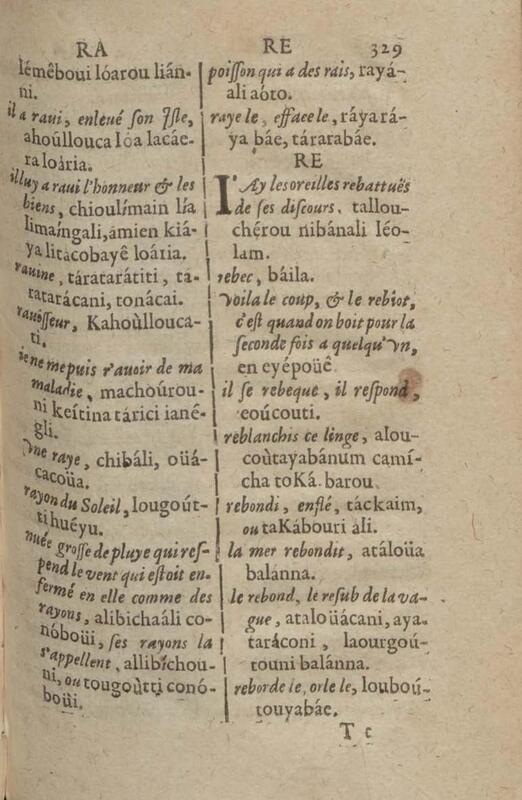 RA
lémêboui lóarou lián-
ni.
il a raui, enleué son Isle,
ahoûllouca lóa lacáe-
ra loária.
illuy a raui l'honneur & les
biens, chioulímain lía
limaíngali, ámien kiá-
ya litácobayê loária.
rauine, táratarátiti, tá-
ratarácani, tonácai.
rauisseur, Kahoùllouca-
ti.
ie ne me puis r'auoir de ma
maladie, machoúrou-
ni keítina tárici iané-
gli.
Vne raye, chibáli, oüá-
cacoüa.
rayon du Soleil, lougoút-
ti huéyu.
nuée grosse de pluye qui res-
pend le vent qui estoit en-
fermé en elle comme des
rayons, alibichaáli co-
nóboüi, ses rayons la
s'appellent, allibíchou-
ni, ou tougoùtti conó-
boüi.
RE 329
poisson qui a des rais, rayá-
ali aóto.
raye le, efface le, ráyará-
ya báe, tárarabáe.
RE
I'Ay les oreilles rebattuës
de ses discours, tallou-
chérou nibánali léo-
lam.
rebec, báila.
Voila le coup, & le rebiot,
c'est quand on boit pour la
seconde fois a quelqu'Vn,
en eyépoüê.
il se rebeque, il respond,
eoúcouti.
reblanchis ce linge, alou-
coùtayabánum camí-
cha toKá. barou.
rebondi, enflé, táckaim,
ou taKábouri áli.
la mer rebondit, atáloüa
balánna.
le rebond, le resub de la va-
gue, ataloüácani, aya-
taráconi, laourgoú-
touni balánna.
reborde le, orle le, louboú-
touyabáe.
T t